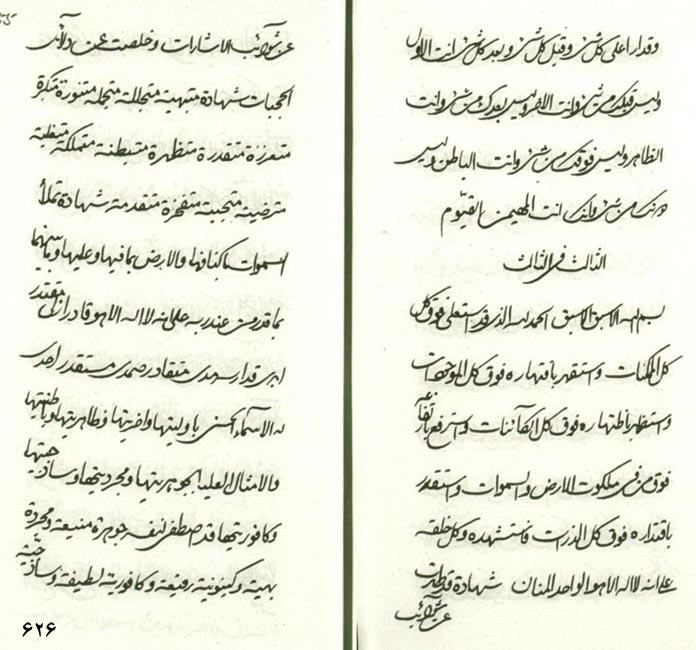 وقدار اعلی کل شئ وقبل کل شئ و بعد کل شئ انت الاول
ولیس قبلک من شئ وانت الاخر ولیس بعدک من شئ وانت
الظاهر ولیس فوقک من شئ وانت الباطن ولیس
دونک من شئ وانک انت المهیمن القیّوم
الثالث فی الثالث
بسم الله الاسبق الاسبق الحمد لله الذی قد استعلی فوق کل
کل الممکنات واستقهر باقتهاره فوق کل الموجودات
واستظهر باظتهاره فوق کل الکآئنات واسترفع بارتفاعه
فوق من فی ملکوت الارض والسموات واستقدر
باقتداره فوق کل الذرات فاستشهده وکل خلقه
علی انه لا اله الا هو الواحد المنان شهادة قد تطهرت
عن شوآئب
عن شوآئب الاشارات وخلصت عن دلآئل
الحجبات شهادة متبهیة متجللة متجملة متنورة متکبرة
متعززة متقدرة متظهرة متبطنة متملکة
مترضیة متحببة متفخرة متقدمة شهادة تملأ
السموات باکنافها والارض بمافیها وعلیها وما بینهما
بما قدر من عند ربه علی انه لا اله الا هو قادر ازلی مقتدر
ابدی قدار سرمدی متقادر صمدی مستقدر احدی
له الاسمآء الحسنی باولیتها واخریتها وظاهریتها وباطنیتها
والامثال العلیا بجوهریتها ومجردیتها وساذجیتها
وکافوریتها قد اصطفی لنفسه جوهرة منیعة ومجردة
بهیة وکینونیة رفیعة وکافوریة لطیفة وساذجیة
۶۲۶